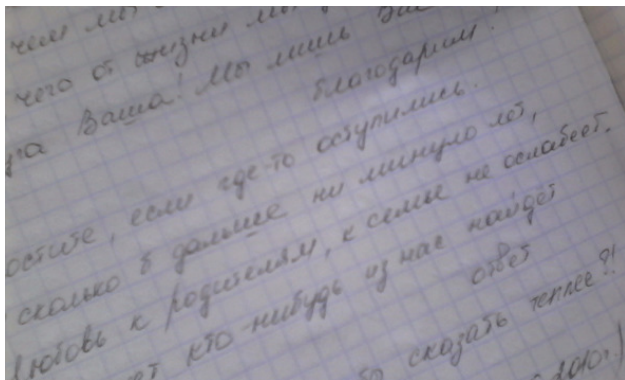 чем мы
чего от жизни мы
Ваша! Мы лишь Вас
благодарим.
остите, если где-то оступились.
сколько б дальше ни минуло лет,
Любовь к родителям, к семье не ослабеет.
ет кто-нибудь из нас найдет
ответ
сказать теплее?!
2010г.)